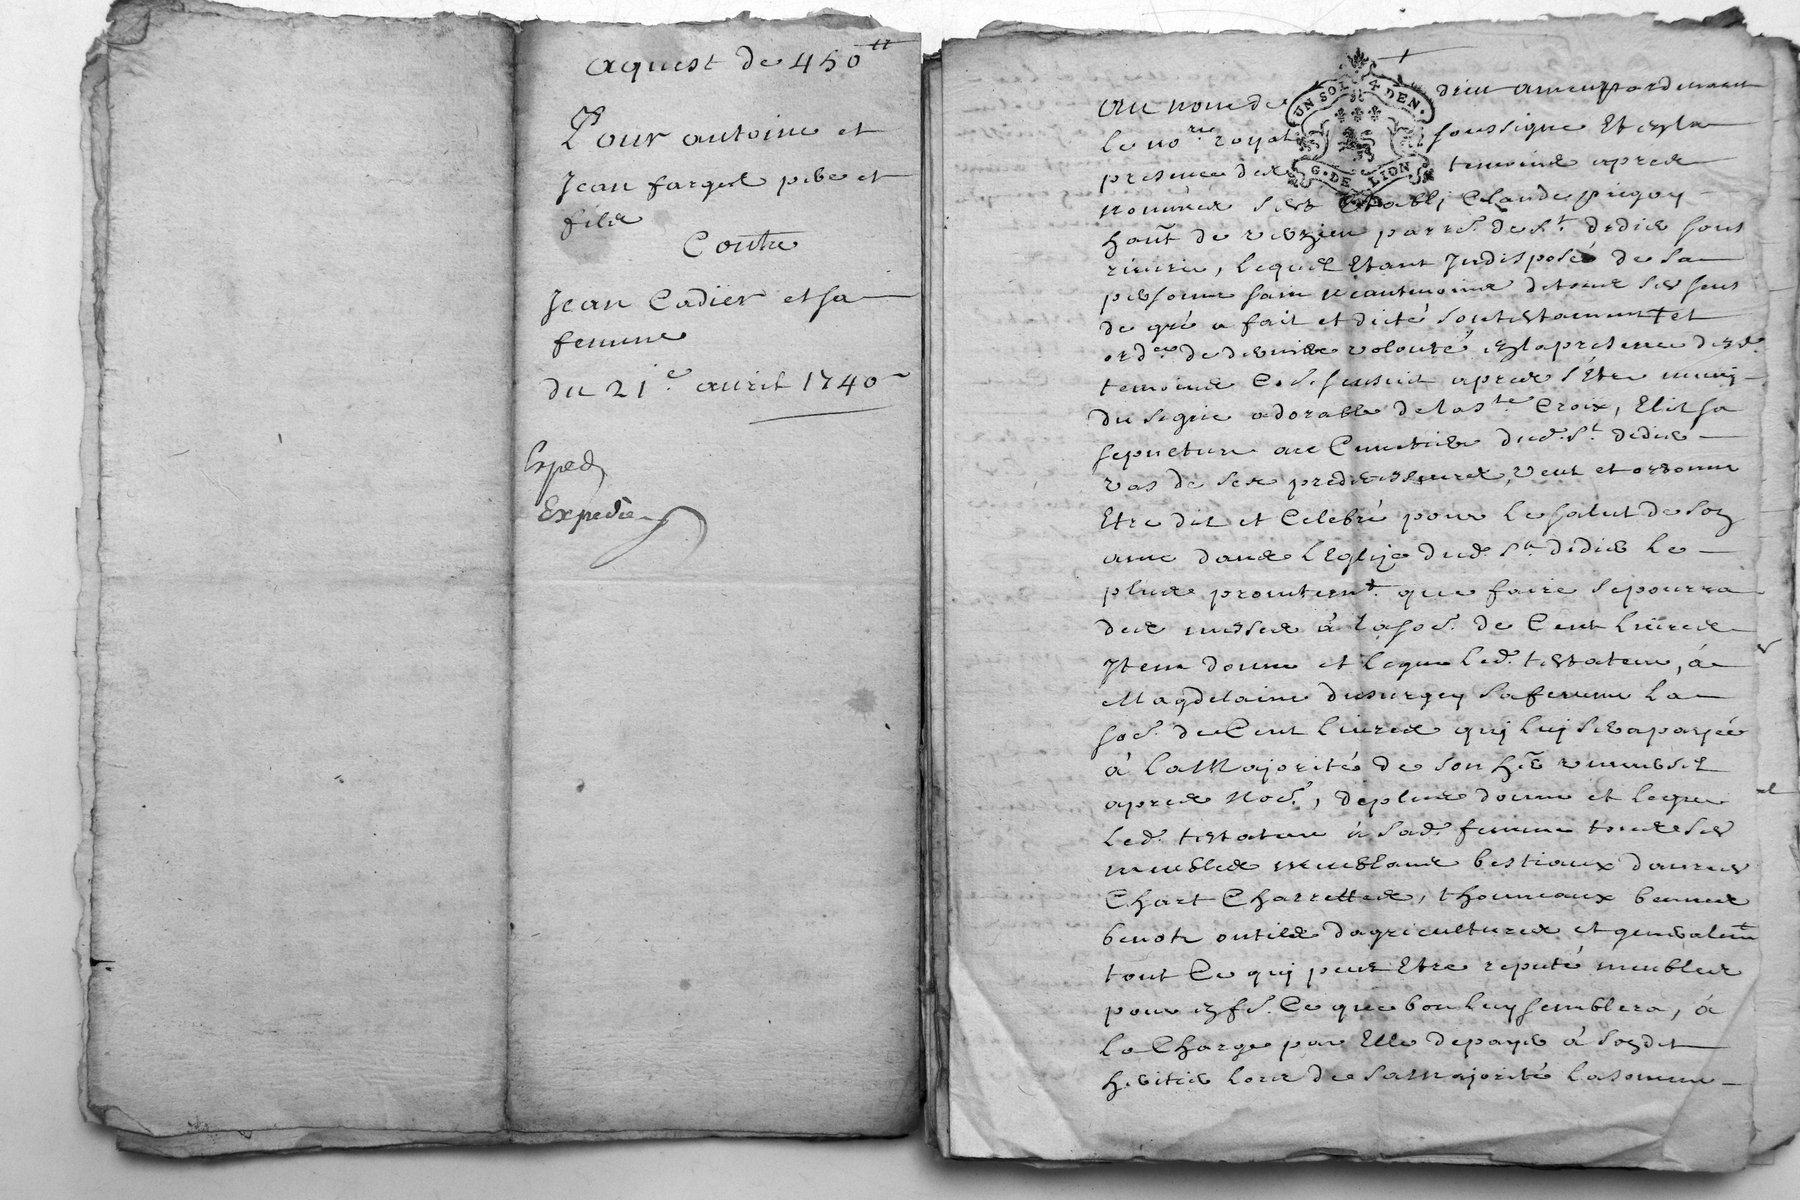 aquest de 450 tt
Pour antoine et
Jean farges pere et
fils
Contre
Jean Cadier et sa
femme
du 21e. avril 1740
Exped
Expedie
UN SOL 4 DEN.
G. DE LION
Au nom de dieu amen pardevant
le nore. royal soussigné Et en la
presence des temoins apres
nommés s'est Etabli Claude
hant. de parr. de St. didier sous
riverie, lequel Etant Indisposé de sa
personne sain neantmoins de tous ses sens
de gré a fait et dicté son testament et
ordce. de derniere volonté, en la presence desd.
temoins C. d. s'ensuit apres s'Etre muny
du signe adorable de la ste. Croix, Elit sa
sepulture au Cimetiere dud. St. didier
vas de ses predecesseurs, veut et ordonne
Etre dit et Celebré pour le salut de son
ame dans l'Eglize dud. St. didier le
plus promtemt. que faire se pourra
des messes à la so. de Cent livres
Item donne et legue led. testateur, à
Magdelaine dusurgey sa femme la
so. de Cent livres quj luj sera payée
à la Majorité de son her
apres de plus donne et legue
led. testateur à sad. femme tous ses
meubles meublans bestiaux danrés
Chart Charrettes, thonneaux bennes
benots outils d'agricultures et generalemt
tout Ce quj peut Etre reputé meubles
pour en f. Ce que bon luy semblera, à
la Charge par Elle de payer à son dit
heritier lors de sa Majorité la somme